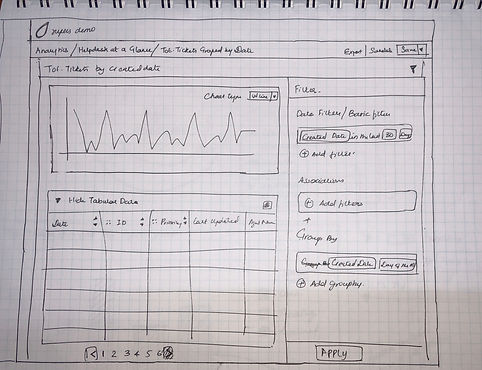 demo
Analytics / Helpdesk at a Glance / Tot. Tickets Grouped by Date
Export Schedule Save
Tot. Tickets by Created date
Filter.
Chart type Line
Date Filter / Basic filter
Created Date in the last 30 Day
Add filter.
Associations
Add filters
Group By
Created Date Day of the
Add groupby.
Hide Tabular Data
Date ID Priority Last Updated
1 2 3 4 5 6
APPLY